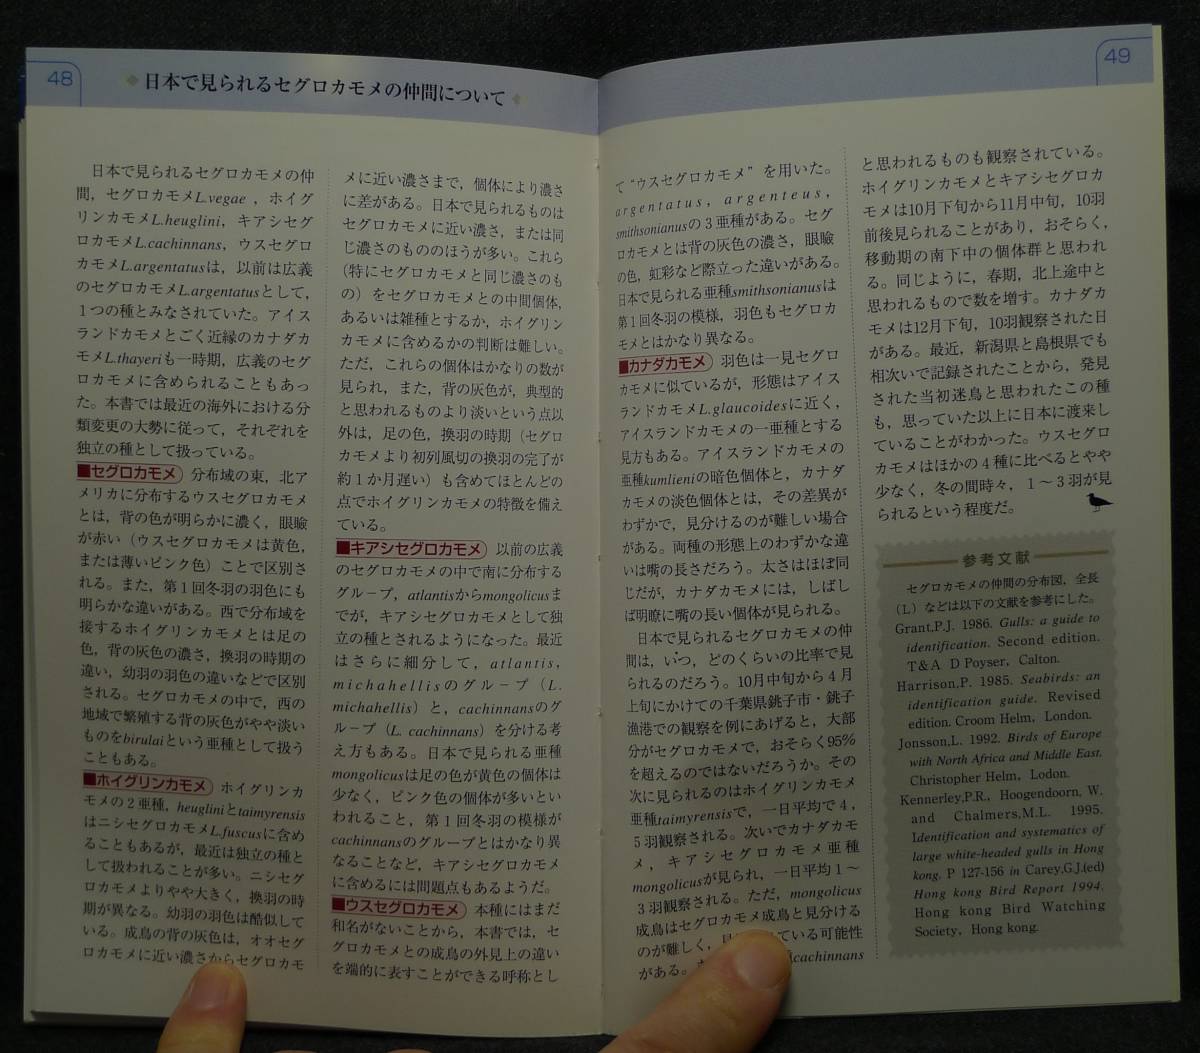 48
日本で見られるセグロカモメの仲間について
日本で見られるセグロカモメの仲
間，セグロカモメL.vegae，ホイグ
リンカモメL.heuglini，キアシセグ
ロカモメL.cachinnans，ウスセグロ
カモメL.argentatusは，以前は広義
のセグロカモメL.argentatusとして，
1つの種とみなされていた。アイス
ランドカモメとごく近縁のカナダカ
モメL.thayeriも一時期，広義のセグ
ロカモメに含められることもあっ
た。本書では最近の海外における分
類変更の大勢に従って，それぞれを
独立の種として扱っている。
■セグロカモメ 分布域の東，北ア
メリカに分布するウスセグロカモメ
とは，背の色が明らかに濃く，眼瞼
が赤い（ウスセグロカモメは黄色，
または薄いピンク色）ことで区別さ
れる。また，第1回冬羽の羽色にも
明らかな違いがある。西で分布域を
接するホイグリンカモメとは足の
色，背の灰色の濃さ，換羽の時期の
違い，幼羽の羽色の違いなどで区別
される。セグロカモメの中で，西の
地域で繁殖する背の灰色がやや淡い
ものをbirulaiという亜種として扱う
こともある。
■ホイグリンカモメ ホイグリンカ
モメの2亜種，heugliniとtaimyrensis
はニシセグロカモメL.fuscusに含め
ることもあるが，最近は独立の種と
して扱われることが多い。ニシセグ
ロカモメよりやや大きく，換羽の時
期が異なる。幼羽の羽色は酷似して
いる。成鳥の背の灰色は，オオセグ
ロカモメに近い濃さからセグロカモ
メに近い濃さまで，個体により濃さ
に差がある。日本で見られるものは
セグロカモメに近い濃さ，または同
じ濃さのもののほうが多い。これら
（特にセグロカモメと同じ濃さのも
の）をセグロカモメとの中間個体，
あるいは雑種とするか，ホイグリン
カモメに含めるかの判断は難しい。
ただ，これらの個体はかなりの数が
見られ，また，背の灰色が，典型的
と思われるものより淡いという点以
外は，足の色，換羽の時期（セグロ
カモメより初列風切の換羽の完了が
約1か月遅い）も含めてほとんどの
点でホイグリンカモメの特徴を備え
ている。
■キアシセグロカモメ 以前の広義
のセグロカモメの中で南に分布する
グループ，atlantisからmongolicusま
でが，キアシセグロカモメとして独
立の種とされるようになった。最近
はさらに細分して，atlantis，
michahellisのグループ（L.
michahellis）と，cachinnansのグ
ループ（L. cachinnans）を分ける考
え方もある。日本で見られる亜種
mongolicusは足の色が黄色の個体は
少なく，ピンク色の個体が多いとい
われること，第1回冬羽の模様が
cachinnansのグループとはかなり異
なることなど，キアシセグロカモメ
に含めるには問題点もあるようだ。
■ウスセグロカモメ 本種にはまだ
和名がないことから，本書では，セ
グロカモメとの成鳥の外見上の違い
を端的に表すことができる呼称とし
49
て“ウスセグロカモメ”を用いた。
argentatus，argenteus，
smithsonianusの3亜種がある。セグ
ロカモメとは背の灰色の濃さ，眼瞼
の色，虹彩など際立った違いがある。
日本で見られる亜種smithsonianusは
第1回冬羽の模様，羽色もセグロカ
モメとはかなり異なる。
■カナダカモメ 羽色は一見セグロ
カモメに似ているが，形態はアイス
ランドカモメL.glaucoidesに近く，
アイスランドカモメの一亜種とする
見方もある。アイスランドカモメの
亜種kumlieniの暗色個体と，カナダ
カモメの淡色個体とは，その差異が
わずかで，見分けるのが難しい場合
がある。両種の形態上のわずかな違
いは嘴の長さだろう。太さはほぼ同
じだが，カナダカモメには，しばし
ば明瞭に嘴の長い個体が見られる。
日本で見られるセグロカモメの仲
間は，いつ，どのくらいの比率で見
られるのだろう。10月中旬から4月
上旬にかけての千葉県銚子市・銚子
漁港での観察を例にあげると，大部
分がセグロカモメで，おそらく95%
を超えるのではないだろうか。その
次に見られるのはホイグリンカモメ
亜種taimyrensisで，一日平均で4，
5羽観察される。次いでカナダカモ
メ，キアシセグロカモメ亜種
mongolicusが見られ，一日平均1〜
3羽観察される。ただ，mongolicus
成鳥はセグロカモメ成鳥と見分ける
のが難しく，ている可能性
がある。cachinnans
と思われるものも観察されている。
ホイグリンカモメとキアシセグロカ
モメは10月下旬から11月中旬，10羽
前後見られることがあり，おそらく，
移動期の南下中の個体群と思われ
る。同じように，春期，北上途中と
思われるもので数を増す。カナダカ
モメは12月下旬，10羽観察された日
がある。最近，新潟県と島根県でも
相次いで記録されたことから，発見
された当初迷鳥と思われたこの種
も，思っていた以上に日本に渡来し
ていることがわかった。ウスセグロ
カモメはほかの4種に比べるとやや
少なく，冬の間時々，1〜3羽が見
られるという程度だ。
参考文献
セグロカモメの仲間の分布図，全長
（L）などは以下の文献を参考にした。
Grant,P.J. 1986. Gulls: a guide to
identification. Second edition.
T&A D Poyser, Calton.
Harrison,P. 1985. Seabirds: an
identification guide. Revised
edition. Croom Helm, London.
Jonsson,L. 1992. Birds of Europe
with North Africa and Middle East.
Christopher Helm, Lodon.
Kennerley,P.R., Hoogendoorn, W.
and Chalmers,M.L. 1995.
Identification and systematics of
large white-headed gulls in Hong
kong. P 127-156 in Carey,G.J.(ed)
Hong kong Bird Report 1994.
Hong kong Bird Watching
Society, Hong kong.